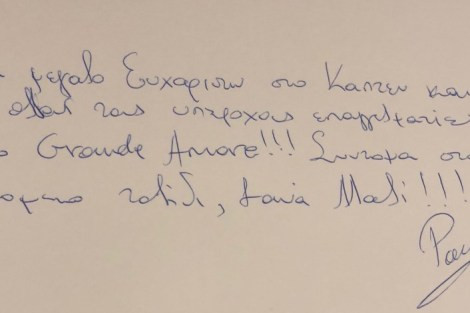 μεγαλο Ευχαριστω στο Καπτεν και
ολους τους υπεροχους επαγγελματιες
Grande Amore!!! Συντομα στο
ταξιδι, ξανα Μαζι!!!